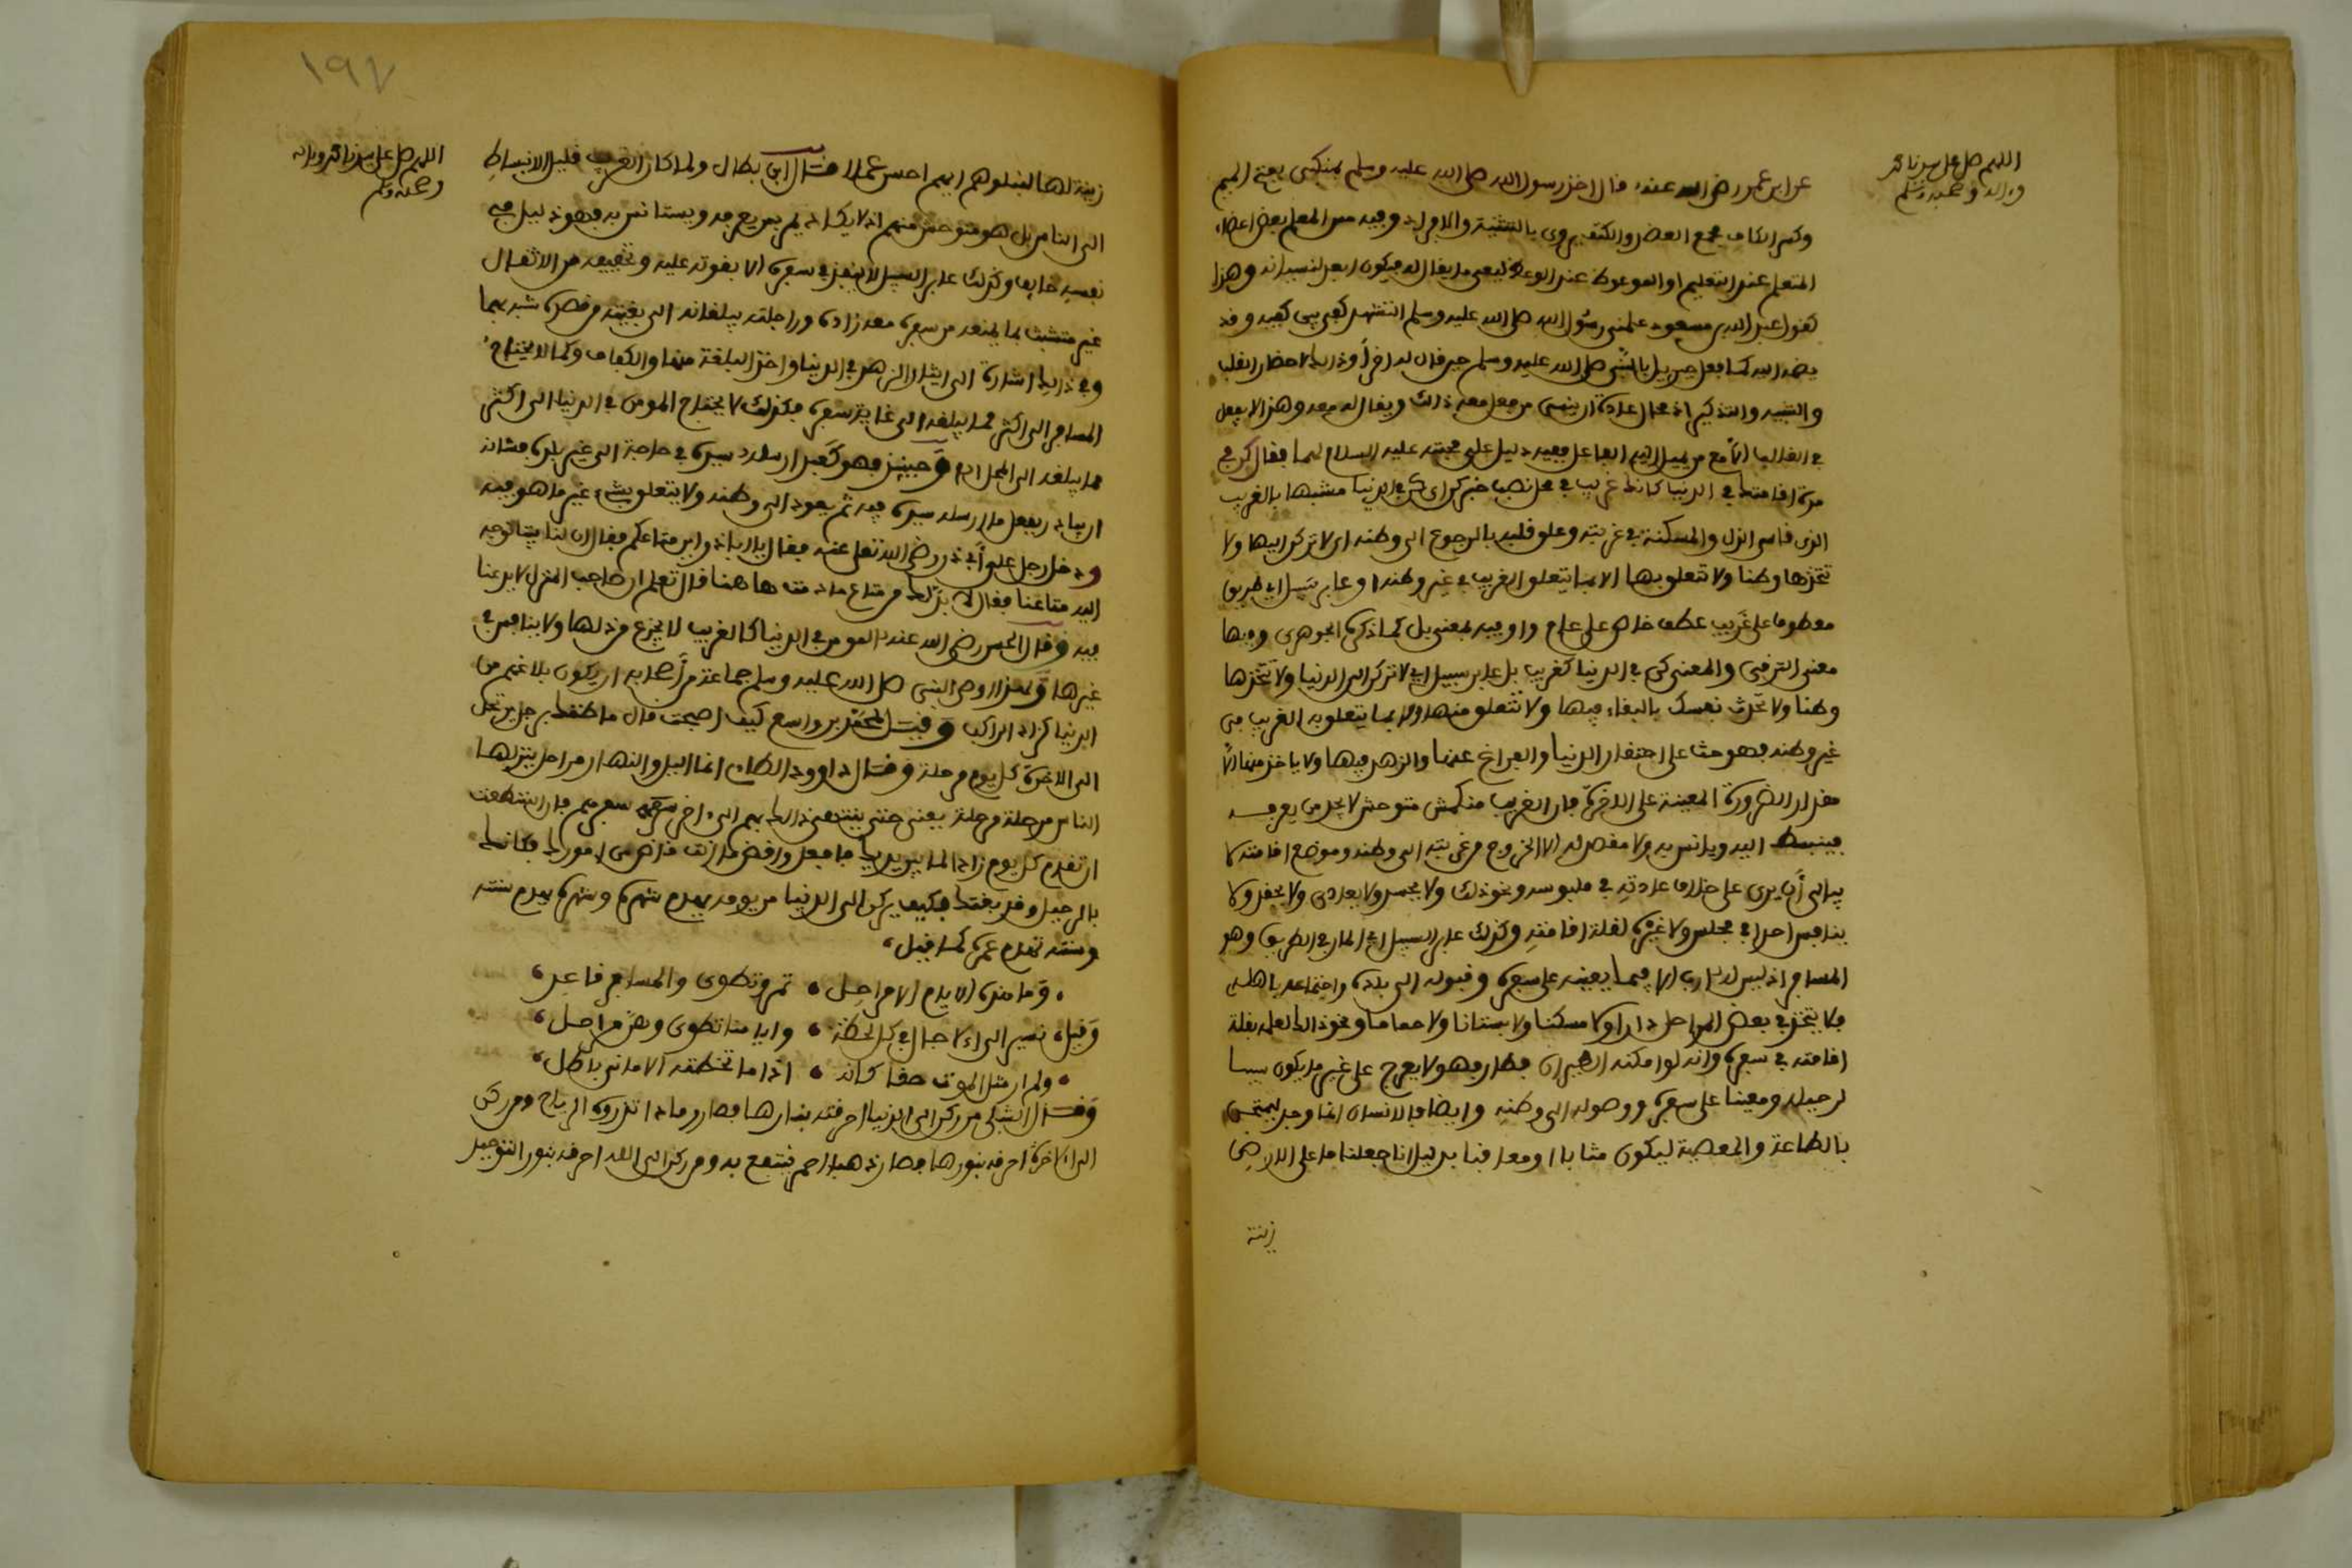 اللهم صل على سيدنا محمد
وءاله وصحبه وسلم
عن ابن عمر رضي الله عنه قال اخذ رسول الله صلى الله عليه وسلم بمنكبي بفتح الميم
وكسر الكاف مجمع العضد والكتف يروى بالتثنية والافراد وفيه مس المعلم بعض اعضاء
المتعلم عند التعليم او الموعوظ عند الوعظ ليعي ما يقال له فيكون ابعد لنسيانه وهذا
كقول عبد الله بن مسعود علمني رسول الله صلى الله عليه وسلم التشهد كفي بين كفيه وقد
يضمه اليه كما فعل جبريل بالنبي صلى الله عليه وسلم حين قال له اقرأ وذلك لاحضار القلب
والتنبيه والتذكير اذ محال عادة ان ينسى من فعل معه ذلك ويقال له معه وهذا لا يفعل
في الغالب الا مع من يميل اليه الفاعل ففيه دليل على محبته عليه السلام لهما فقال كن في
مدة اقامتك في الدنيا كانك غريب في محل نصب خبر كن اي كن في الدنيا مشبها بالغريب
الذي قاسى الذل والمسكنة في غربته وعلق قلبه بالرجوع الى وطنه اي لا تركن اليها ولا
تتخذها وطنا ولا تتعلق بها الا بما يتعلق الغريب في غير وطنه او عابر سبيل اي طريق
معطوف على غريب عطف خاص على عام واو فيه بمعنى بل كما ذكره الجوهري وفيها
معنى الترقي والمعنى كن في الدنيا كغريب بل عابر سبيل اي لا تركن الى الدنيا ولا تتخذها
وطنا ولا تحدث نفسك بالبقاء فيها ولا تتعلق منها الا بما يتعلق به الغريب في
غير وطنه فهو حث على احتقار الدنيا والفراغ عنها والزهد فيها ولا ياخذ منها الا
مقدار الضرورة المعينة على الاخرة فان الغريب منكمش متوحش لا يجد من يعرفه
فينبسط اليه ويانس به ولا مقصد له الا الخروج من غربته الى وطنه وموضع اقامته لا
يبالي أن يرى على خلاف عادته في ملبوسه ونحو ذلك ولا يحسد ولا يعادي ولا يحقد ولا
ينافس احدا في مجلس ولا غيره لقلة اقامته وكذلك عابر السبيل اي المار في الطريق وهو
المسافر اذ ليس له ارب الا فيما يعينه على سفره وقبوله الى بلده واجتماعه باهله
فلا يتخذ في بعض المراحل دارا ولا مسكنا ولا بستانا ولا حماما ونحو ذلك لعلمه بقلة
اقامته في سفره وانه لو امكنه الطيران فطار فهو لا يعرج على غير ما يكون سببا
لرحيله ومعينا على سفره ووصوله الى وطنه وايضا فالانسان انما وجد ليمتحن
بالطاعة والمعصية ليكون مثابا او معاقبا بدليل انا جعلنا ما على الارض
زينة
١٩٧
اللهم صل على سيدنا محمد وءاله
وصحبه وسلم
زينة لها لنبلوهم ايهم احسن عملا قال ابن بطال ولما كان الغريب قليل الانبساط
الى الناس بل هو متوحش منهم اذ لا يكاد يمر بمن يعرفه ويستانس به فهو ذليل في
نفسه خايف وكذلك عابر السبيل لا ينفذ في سفره الا بقوته عليه وتخفيفه من الاثقال
غير متشبث بما يمنعه من سفره معه زاده وراحلته يبلغانه الى بغيته من قصده شبهه بهما
وفي ذلك اشارة الى ايثار الزهد في الدنيا واخذ البلغة منها والكفاف وكما لا يحتاج
المسافر الى اكثر مما يبلغه الى غاية سفره فكذلك لا يحتاج المومن في الدنيا الى اكثر
مما يبلغه الى المحل اه وحينيذ فهو كعبد ارسله سيده في حاجة الى غير بلده فشانه
ان يبادر بفعل ما ارسله سيده فيه ثم يعود الى وطنه ولا يتعلق بشيء غير ما هو فيه
ودخل رجل على أبي ذر رضي الله تعلى عنه فقال يا ابا ذر اين متاعكم فقال ان لنا بيتا نوجه
اليه متاعنا فقال لا بد لك من متاع ما دمت ها هنا قال تعلم ان صاحب المنزل لا يدعنا
فيه وقال الحسن رضي الله عنه المومن في الدنيا كالغريب لا يجزع من ذلها ولا ينافس في
غيرها ولهذا اوصى النبي صلى الله عليه وسلم جماعة من أصحابه ان يكون بلاغهم من
الدنيا كزاد الراكب وقيل لمحمد بن واسع كيف اصبحت قال ما ظنك برجل يرتحل
الى الاخرة كل يوم مرحلة وقال داوود الطاي انما الليل والنهار مراحل ينزلها
الناس مرحلة مرحلة حتى ينتهي ذلك بهم الى ءاخر سفرهم فان استطعت
ان تقدم كل يوم زادا لما بين يديها فافعل واقض ما انت قاض من امورك فكانك
بالرحيل وقد بغتك فكيف يركن الى الدنيا من يومه يهدم شهره وشهره يهدم سنته
وسنته تهدم عمره كما قيل
وما هذه الايام الا مراحل • تمر وتطوى والمسافر قاعد
وقيل نسير الى الاجال في كل لحظة • وايامنا تطوى وهن مراحل
• ولم ار مثل الموت حقا كانه • اذا ما تخطته الاماني باطل
وقال الشبلي من ركن الى الدنيا احرقته بنارها فصار رمادا تذروه الرياح ومن ركن
الى الاخرة احرقته بنورها فصار ذهبا احمر ينتفع به ومن ركن الى الله احرقه بنور التوحيد